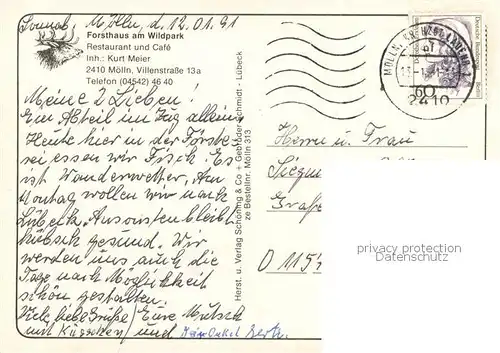 Sonnab. Mölln, d. 12.01.91
Forsthaus am Wildpark
Restaurant und Café
Inh.: Kurt Meier
2410 Mölln, Villenstraße 13a
Telefon (04542) 46 40
Meine 2 Lieben!
Ein Abteil im Zug allein,
Heute hier in der Förste-
rei essen wir Fisch. Es
ist Wanderwetter. Am
Montag wollen wir nach
Lübeck. Ansonsten bleibt
hübsch gesund. Wir
werden uns auch die
Tage nach Möglichkeit
schön gestalten.
Viele liebe Grüße Eure Mutsch
mit Küsschen und Dein Onkel
Herst. u. Verlag Schöning & Co + Gebrüder Schmidt · Lübeck
ze Bestellnr. Mölln 313
Deutsche Bundespost Berlin
MÖLLN
60
2410
Herrn u. Frau
D 115
privacy protection
Datenschutz